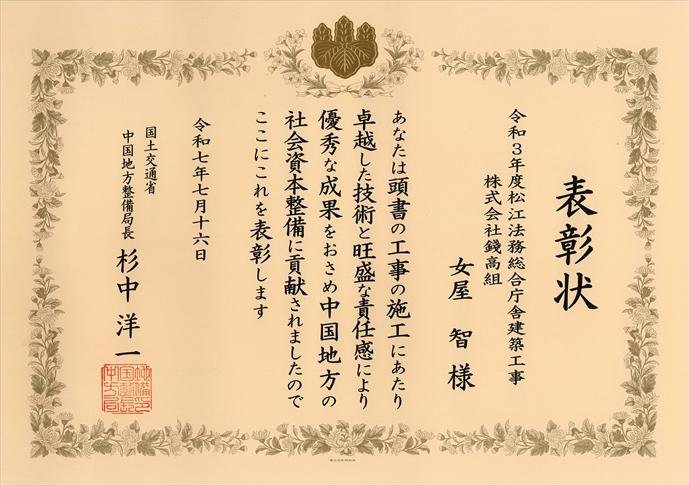 表彰状
令和3年度松江法務総合庁舎建築工事
株式会社錢高組
女屋 智 様
あなたは頭書の工事の施工にあたり
卓越した技術と旺盛な責任感により
優秀な成果をおさめ中国地方の
社会資本整備に貢献されましたので
ここにこれを表彰します
令和七年七月十六日
国土交通省
中国地方整備局長
杉中 洋一